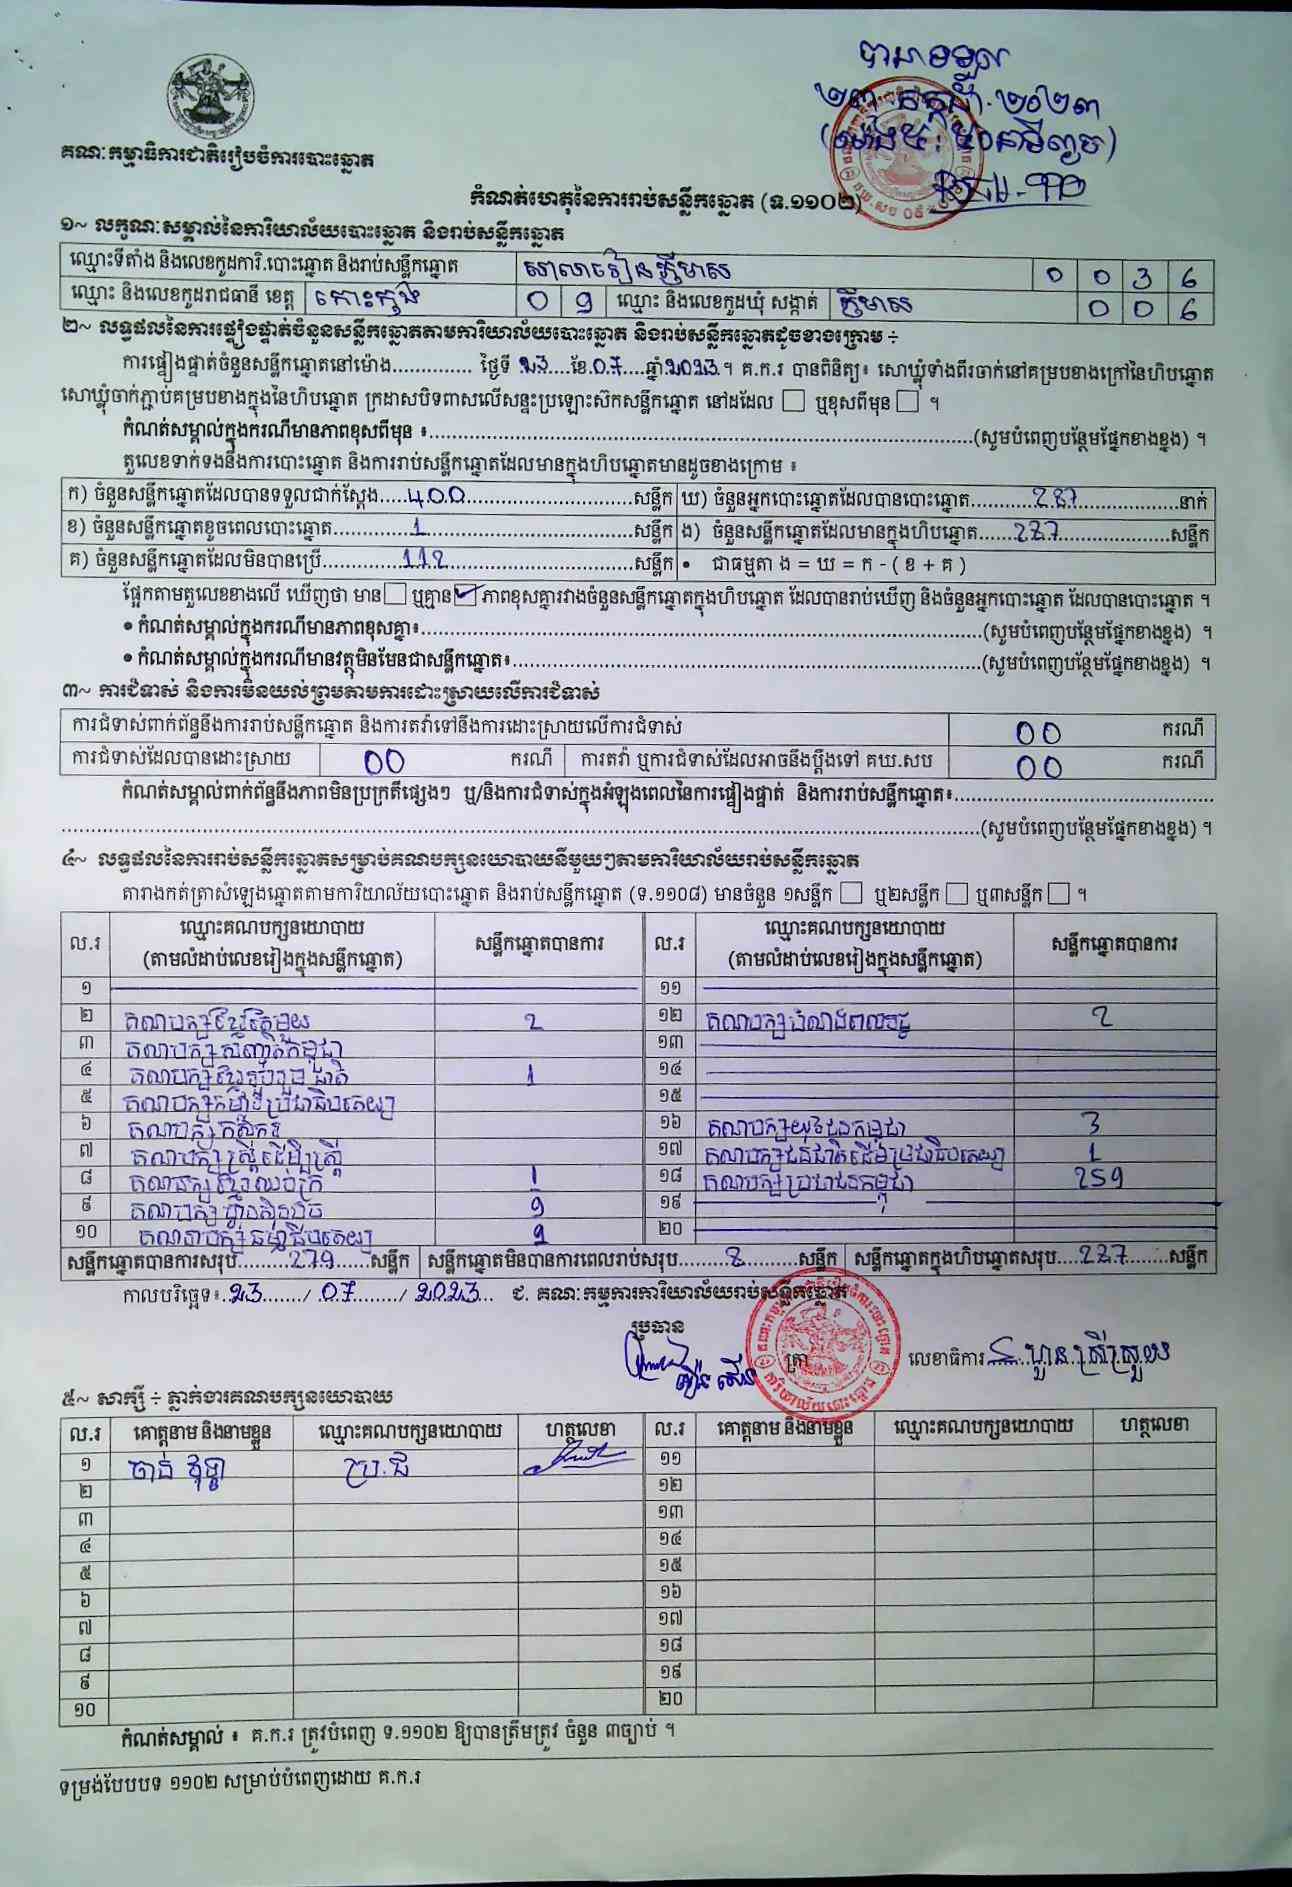 បានមកទទួល
២៣ កក្កដា ២០២៣
គណៈកម្មាធិការជាតិរៀបចំការបោះឆ្នោត
កំណត់ហេតុនៃការរាប់សន្លឹកឆ្នោត (ទ.១១០២)
១~ លក្ខណៈសម្គាល់នៃការិយាល័យបោះឆ្នោត និងរាប់សន្លឹកឆ្នោត
ឈ្មោះទីតាំង និងលេខកូដការិ.បោះឆ្នោត និងរាប់សន្លឹកឆ្នោត សាលារៀនភ្ញីមាស 0 0 3 6
ឈ្មោះ និងលេខកូដរាជធានី ខេត្ត កោះកុង 0 9 ឈ្មោះ និងលេខកូដឃុំ សង្កាត់ ភ្ញីមាស 0 0 6
២~ លទ្ធផលនៃការផ្ទៀងផ្ទាត់ចំនួនសន្លឹកឆ្នោតតាមការិយាល័យបោះឆ្នោត និងរាប់សន្លឹកឆ្នោតដូចខាងក្រោម ÷
ការផ្ទៀងផ្ទាត់ចំនួនសន្លឹកឆ្នោតនៅម៉ោង.............. ថ្ងៃទី 23 ខែ 07 ឆ្នាំ 2023 ។ គ.ក.រ បានពិនិត្យ៖ សោឃ្លុំទាំងពីរចាក់នៅគម្របខាងក្រៅនៃហិបឆ្នោត
សោឃ្លុំចាក់ភ្ជាប់គម្របខាងក្នុងនៃហិបឆ្នោត ក្រដាសបិទពាសលើសន្ទះប្រឡោះស៊កសន្លឹកឆ្នោត នៅដដែល ☐ ឬខុសពីមុន ☐ ។
កំណត់សម្គាល់ក្នុងករណីមានភាពខុសពីមុន ៖..............(សូមបំពេញបន្ថែមផ្នែកខាងខ្នង) ។
តួលេខទាក់ទងនឹងការបោះឆ្នោត និងការរាប់សន្លឹកឆ្នោតដែលមានក្នុងហិបឆ្នោតមានដូចខាងក្រោម ៖
ក) ចំនួនសន្លឹកឆ្នោតដែលបានទទួលជាក់ស្តែង.....400.....សន្លឹក ឃ) ចំនួនអ្នកបោះឆ្នោតដែលបានបោះឆ្នោត.....287.....នាក់
ខ) ចំនួនសន្លឹកឆ្នោតខូចពេលបោះឆ្នោត.....1.....សន្លឹក ង) ចំនួនសន្លឹកឆ្នោតដែលមានក្នុងហិបឆ្នោត.....287.....សន្លឹក
គ) ចំនួនសន្លឹកឆ្នោតដែលមិនបានប្រើ.....112.....សន្លឹក • ជាធម្មតា ង = ឃ = ក - ( ខ + គ )
ផ្អែកតាមតួលេខខាងលើ ឃើញថា មាន ☐ ឬគ្មាន ☑ ភាពខុសគ្នារវាងចំនួនសន្លឹកឆ្នោតក្នុងហិបឆ្នោត ដែលបានរាប់ឃើញ និងចំនួនអ្នកបោះឆ្នោត ដែលបានបោះឆ្នោត ។
• កំណត់សម្គាល់ក្នុងករណីមានភាពខុសគ្នា៖..............(សូមបំពេញបន្ថែមផ្នែកខាងខ្នង) ។
• កំណត់សម្គាល់ក្នុងករណីមានវត្ថុមិនមែនជាសន្លឹកឆ្នោត៖..............(សូមបំពេញបន្ថែមផ្នែកខាងខ្នង) ។
៣~ ការជំទាស់ និងការមិនយល់ព្រមតាមការដោះស្រាយលើការជំទាស់
ការជំទាស់ពាក់ព័ន្ធនឹងការរាប់សន្លឹកឆ្នោត និងការតវ៉ាទៅនឹងការដោះស្រាយលើការជំទាស់ 00 ករណី
ការជំទាស់ដែលបានដោះស្រាយ 00 ករណី ការតវ៉ា ឬការជំទាស់ដែលអាចនឹងប្តឹងទៅ គឃ.សប 00 ករណី
កំណត់សម្គាល់ពាក់ព័ន្ធនឹងភាពមិនប្រក្រតីផ្សេងៗ ឬ/និងការជំទាស់ក្នុងអំឡុងពេលនៃការផ្ទៀងផ្ទាត់ និងការរាប់សន្លឹកឆ្នោត៖..............
..............(សូមបំពេញបន្ថែមផ្នែកខាងខ្នង) ។
៤~ លទ្ធផលនៃការរាប់សន្លឹកឆ្នោតសម្រាប់គណបក្សនយោបាយនីមួយៗតាមការិយាល័យរាប់សន្លឹកឆ្នោត
តារាងកត់ត្រាសំឡេងឆ្នោតតាមការិយាល័យបោះឆ្នោត និងរាប់សន្លឹកឆ្នោត (ទ.១១០៨) មានចំនួន ១សន្លឹក ☐ ឬ២សន្លឹក ☐ ឬ៣សន្លឹក ☐ ។
ល.រ ឈ្មោះគណបក្សនយោបាយ (តាមលំដាប់លេខរៀងក្នុងសន្លឹកឆ្នោត) សន្លឹកឆ្នោតបានការ ល.រ ឈ្មោះគណបក្សនយោបាយ (តាមលំដាប់លេខរៀងក្នុងសន្លឹកឆ្នោត) សន្លឹកឆ្នោតបានការ
១ ១១
២ គណបក្សខ្មែរតែមួយ 2 ១២ គណបក្សតំណាងពលរដ្ឋ 2
៣ គណបក្សសញ្ជាតិកម្ពុជា ១៣
៤ គណបក្សខ្មែររួបរួមជាតិ 1 ១៤
៥ គណបក្សកម្លាំងប្រជាធិបតេយ្យ ១៥
៦ គណបក្សកសិករ ១៦ គណបក្សយុវជនកម្ពុជា 3
៧ គណបក្សស្រ្តីដើម្បីស្រ្តី ១៧ គណបក្សជនជាតិដើមប្រជាធិបតេយ្យ 1
៨ គណបក្សខ្មែរឈប់ក្រ 1 ១៨ គណបក្សប្រជាជនកម្ពុជា 259
៩ គណបក្សហ្វ៊ុនស៊ិនប៉ិច 9 ១៩
១០ គណបក្សធម្មាធិបតេយ្យ 1 ២០
សន្លឹកឆ្នោតបានការសរុប.....279.....សន្លឹក សន្លឹកឆ្នោតមិនបានការពេលរាប់សរុប.....8.....សន្លឹក សន្លឹកឆ្នោតក្នុងហិបឆ្នោតសរុប.....287.....សន្លឹក
កាលបរិច្ឆេទ៖ 23 / 07 / 2023 ជ. គណៈកម្មការការិយាល័យរាប់សន្លឹកឆ្នោត
ប្រធាន
ត្រា លេខាធិការ ហួន ស្រីស្រួយ
៥~ សាក្សី ÷ ភ្នាក់ងារគណបក្សនយោបាយ
ល.រ គោត្តនាម និងនាមខ្លួន ឈ្មោះគណបក្សនយោបាយ ហត្ថលេខា ល.រ គោត្តនាម និងនាមខ្លួន ឈ្មោះគណបក្សនយោបាយ ហត្ថលេខា
១ ចាន់ វុទ្ធា ប្រ.ជ ១១
២ ១២
៣ ១៣
៤ ១៤
៥ ១៥
៦ ១៦
៧ ១៧
៨ ១៨
៩ ១៩
១០ ២០
កំណត់សម្គាល់ ៖ គ.ក.រ ត្រូវបំពេញ ទ.១១០២ ឱ្យបានត្រឹមត្រូវ ចំនួន ៣ច្បាប់ ។
ទម្រង់បែបបទ ១១០២ សម្រាប់បំពេញដោយ គ.ក.រ